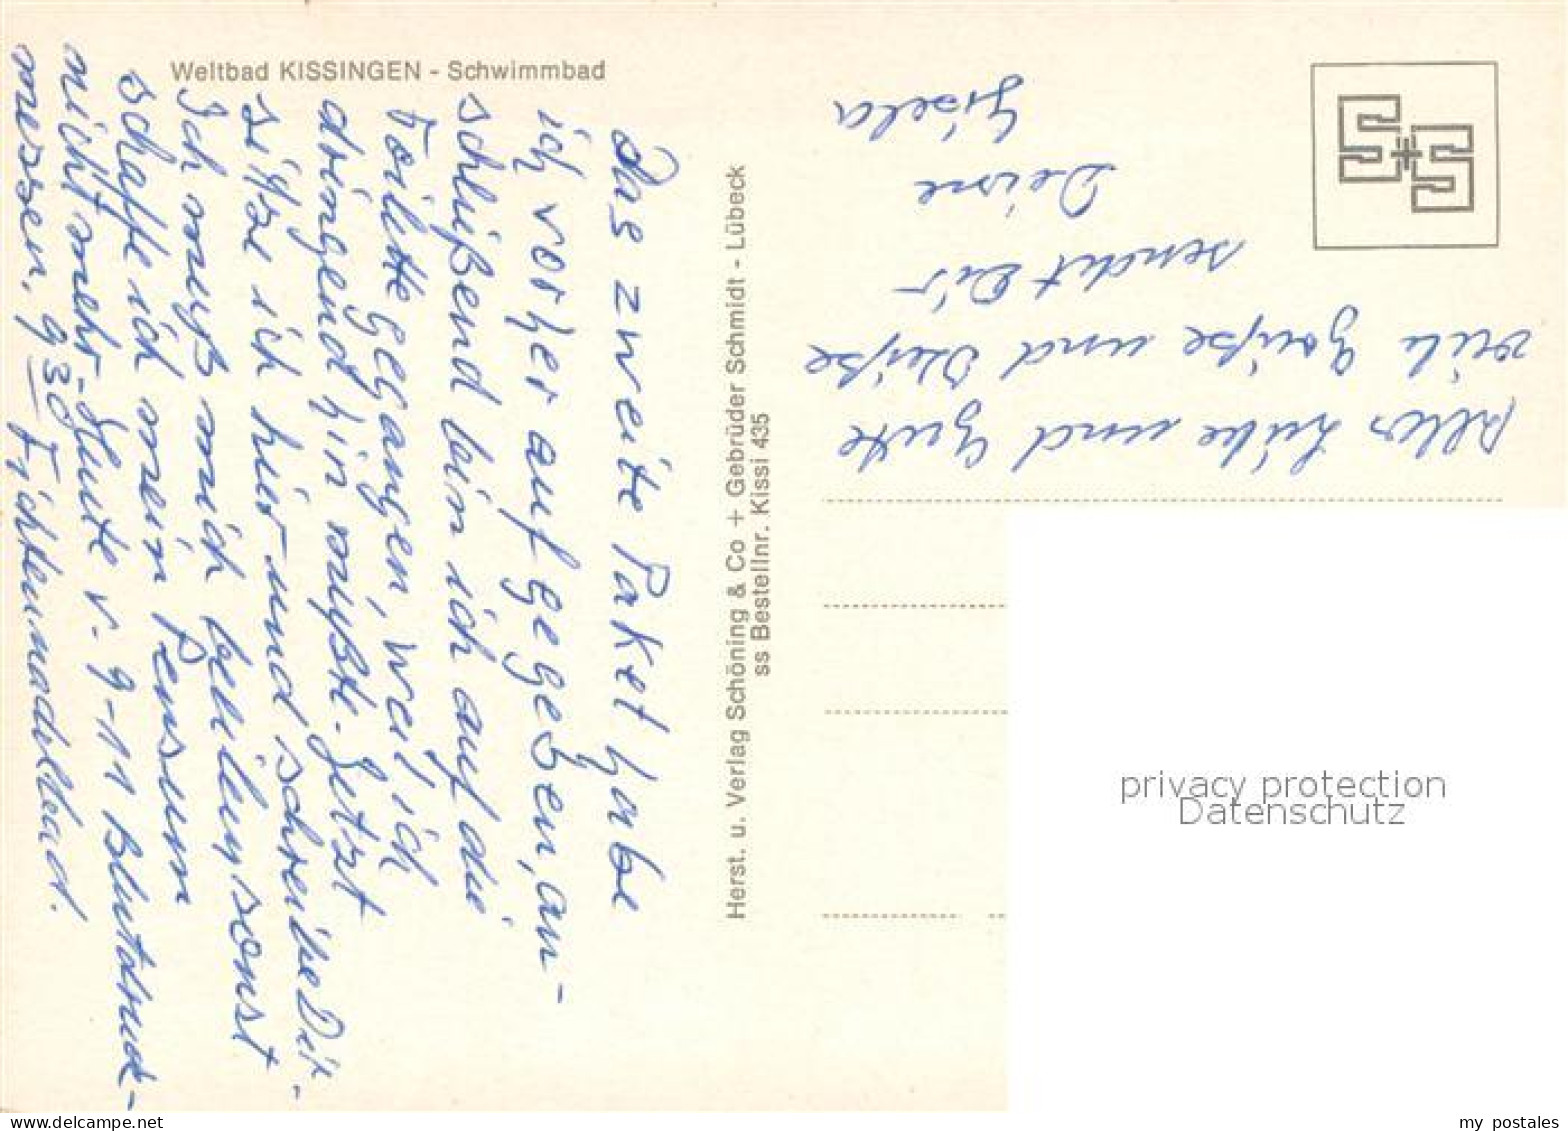 Weltbad KISSINGEN - Schwimmbad
Das zweite Paket habe
ich vorher aufgegeben, an-
schließend bin ich auf die
Toilette gegangen, weil ich
dringend hin mußte. Jetzt
sitze ich hier und schreibe Dir.-
Ich muß mich beeilen, sonst
schaffe ich mein Pensum
nicht mehr. Heute v. 9-11 Blutdruck-
messen, 9 30 Fichtennadelbad.
Alles Liebe und Gute
viele Grüße und Küße
sendet Dir
Deine
Gisela
Herst. u. Verlag Schöning & Co + Gebrüder Schmidt - Lübeck
ss Bestellnr. Kissi 435
S+S
privacy protection
Datenschutz
my postales